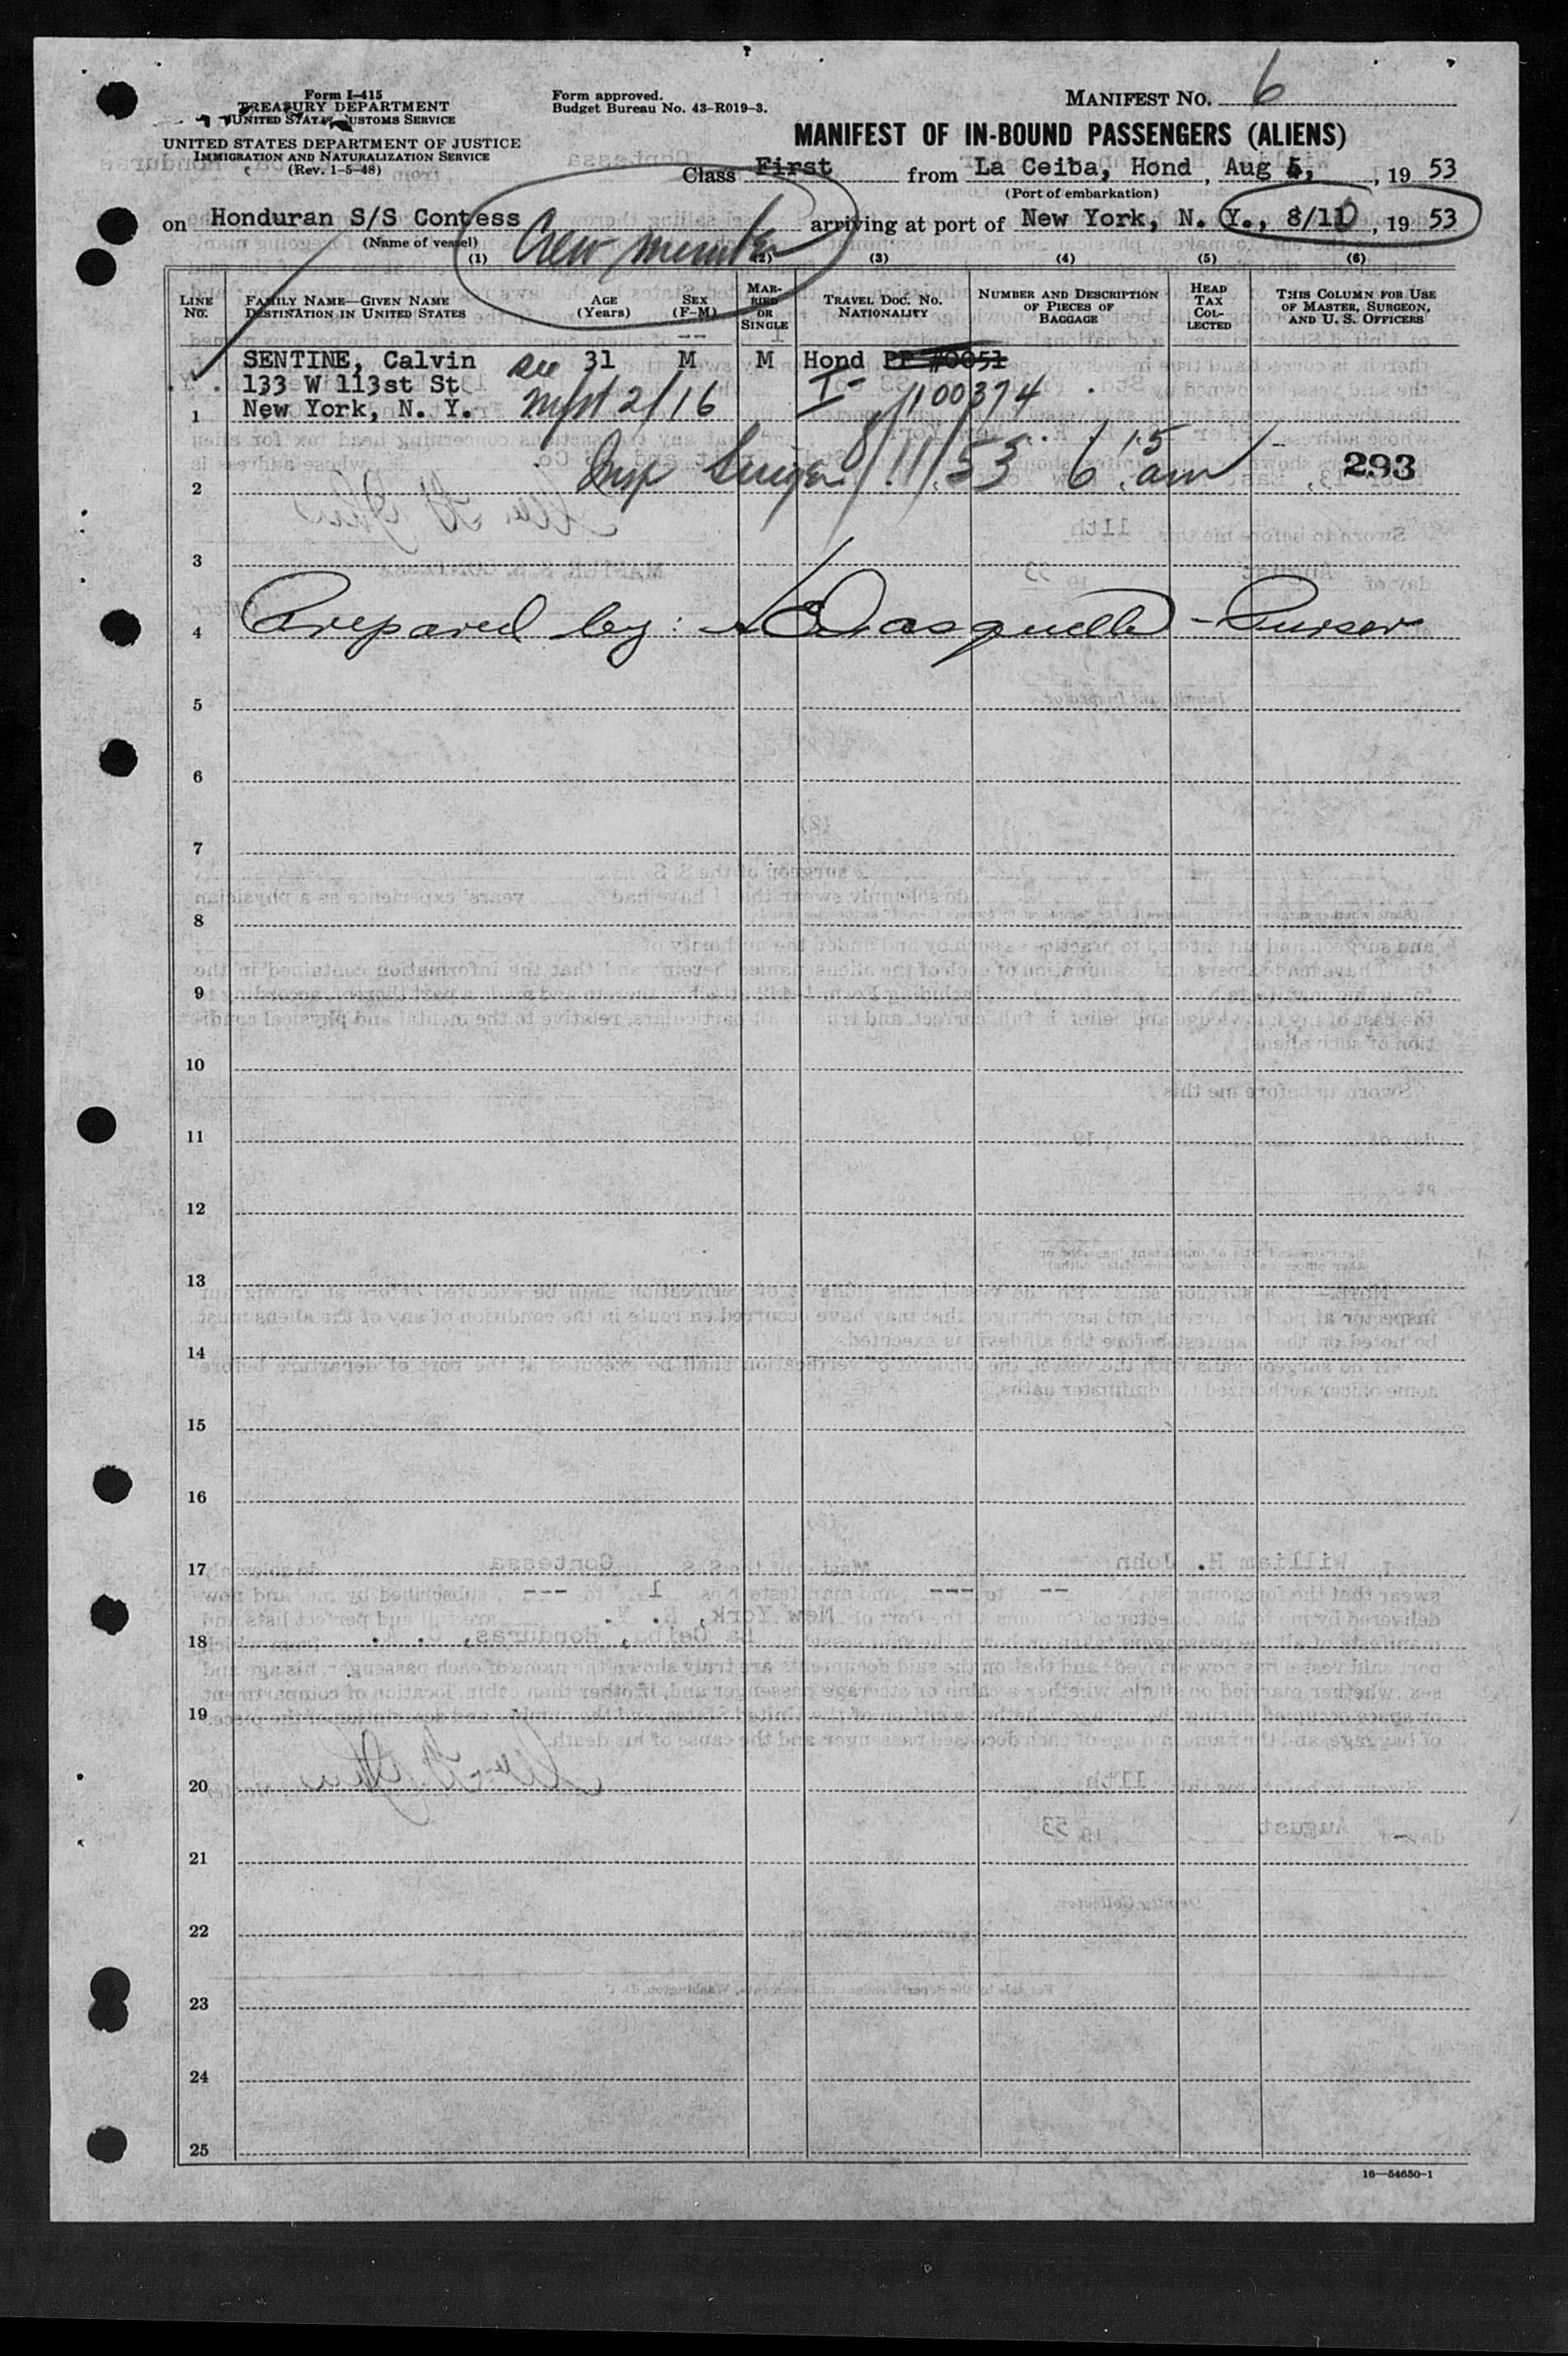 Form I-415
TREASURY DEPARTMENT
UNITED STATES CUSTOMS SERVICE
UNITED STATES DEPARTMENT OF JUSTICE
IMMIGRATION AND NATURALIZATION SERVICE
(Rev. 1-5-48)
Form approved.
Budget Bureau No. 43-R019-3.
MANIFEST NO. 6
MANIFEST OF IN-BOUND PASSENGERS (ALIENS)
Class First from La Ceiba, Hond, Aug 5, , 19 53
(Port of embarkation)
on Honduran S/S Contess arriving at port of New York, N. Y., 8/11 , 19 53
(Name of vessel)
Crew member
(1) (2) (3) (4) (5) (6)
LINE NO.
FAMILY NAME—GIVEN NAME
DESTINATION IN UNITED STATES
AGE (Years)
SEX (F-M)
MARRIED OR SINGLE
TRAVEL DOC. NO.
NATIONALITY
NUMBER AND DESCRIPTION OF PIECES OF BAGGAGE
HEAD TAX COLLECTED
THIS COLUMN FOR USE OF MASTER, SURGEON, AND U. S. OFFICERS
SENTINE, Calvin see 31 M M Hond PP #0051
133 W 113st St I-
1 New York, N. Y. mfst 2/16 1100374
Insp 8/11/53 6:15 am 293
2
3
4 Prepared by: - Purser
5
6
7
8
9
10
11
12
13
14
15
16
17
18
19
20
21
22
23
24
25
16—54650-1